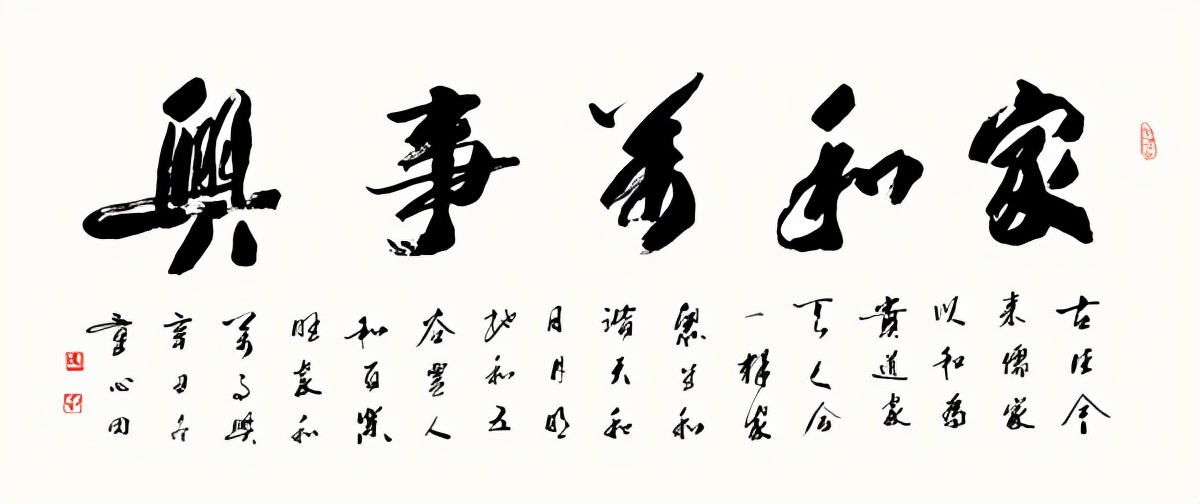 家和萬事興
古往今
来儒家
以和為
貴道家
天人合
一釋家
和
谐天和
日月明
地和五
谷豐人
和百業
旺家和
萬事興
辛丑
心田